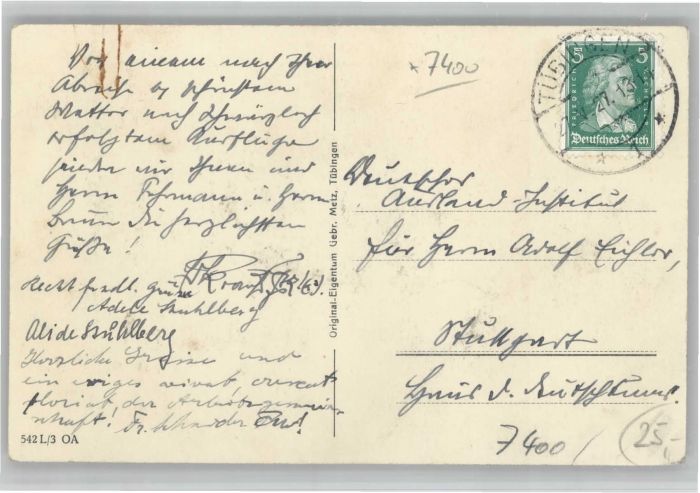 Von einem nach Ihrer
Abreise bei schönstem
Wetter nach
erfolgtem Ausfluge
senden wir Ihnen und
Herrn Fhrmann u. Herrn
Braun die herzlichsten
Grüße!
Recht frndl. Grüße
Adele Stuhlberg
Alide Stuhlberg
Herzliche Grüsse und
ein ewiges vivat, crescat
floriat, der Arbeitsgemein-
schaft. Fr. Schneider
542 L/3 OA
Original-Eigentum Gebr. Metz, Tübingen
* 7400
TÜBINGEN
27.
5
5
FRIEDRICH
Deutsches Reich
Deutsches
Ausland-Institut
für Herrn Adolf Eichler,
Stuttgart
Haus d. Deutschtums.
7400/
25-